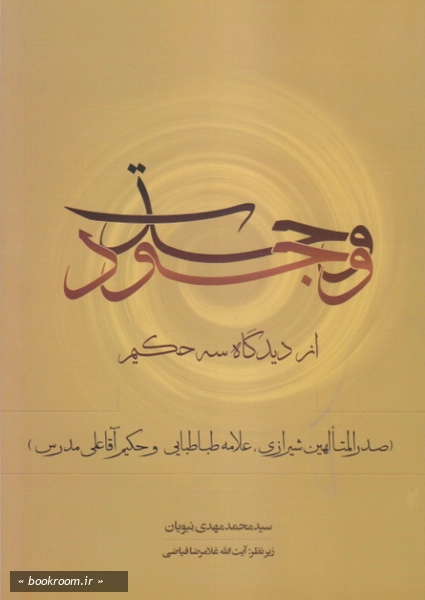 وحدت
وجود
از دیدگاه سه حکیم
(صدرالمتألهین شیرازی، علامه طباطبایی و حکیم آقاعلی مدرس)
سیدمحمدمهدی نبویان
زیرنظر: آیت الله غلامرضا فیاضی
« bookroom.ir »